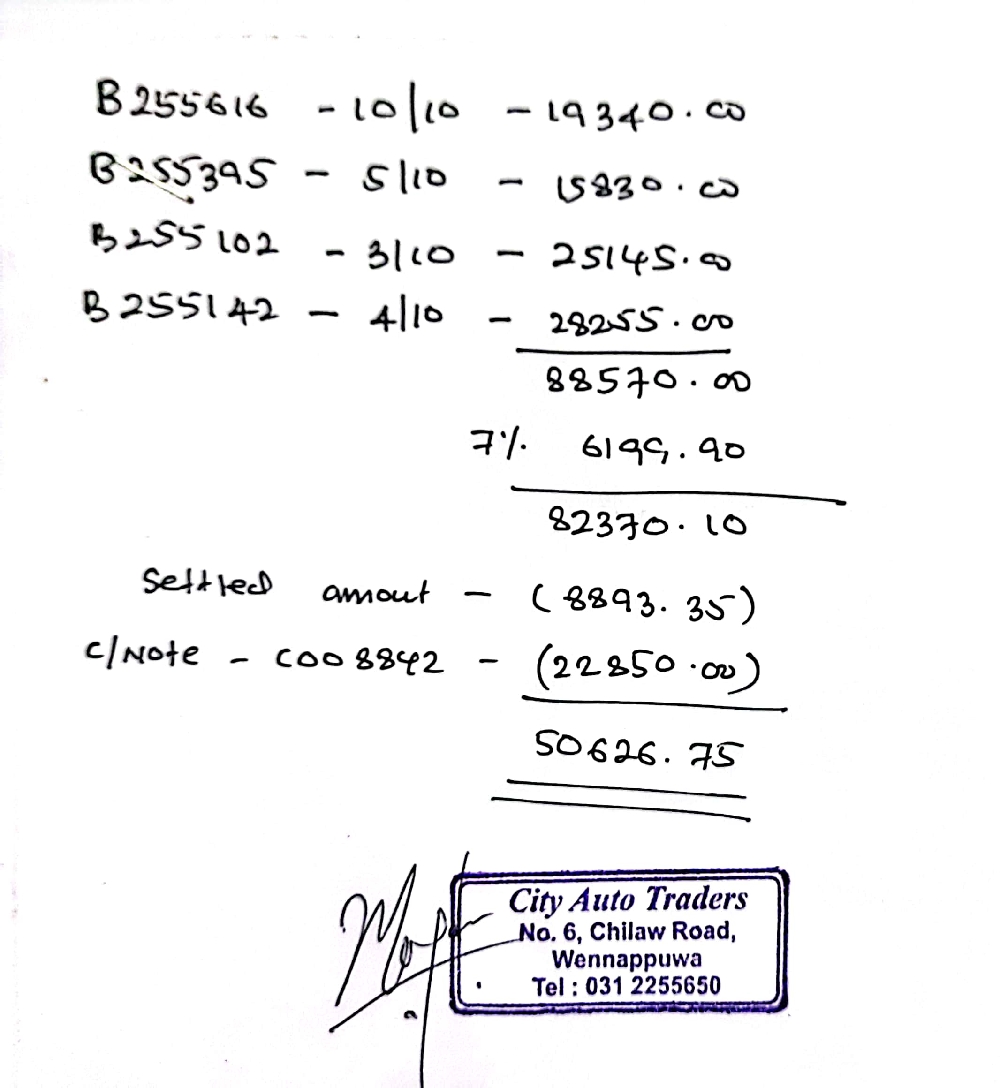 B 255616 - 10/10 - 19340.00
B 255395 - 5/10 - 15830.00
B 255102 - 3/10 - 25145.00
B 255142 - 4/10 - 28255.00
88570.00
7% 6199.90
82370.10
Settled amout - (8893.35)
C/Note - C008842 - (22850.00)
50626.75
City Auto Traders
No. 6, Chilaw Road,
Wennappuwa
Tel : 031 2255650